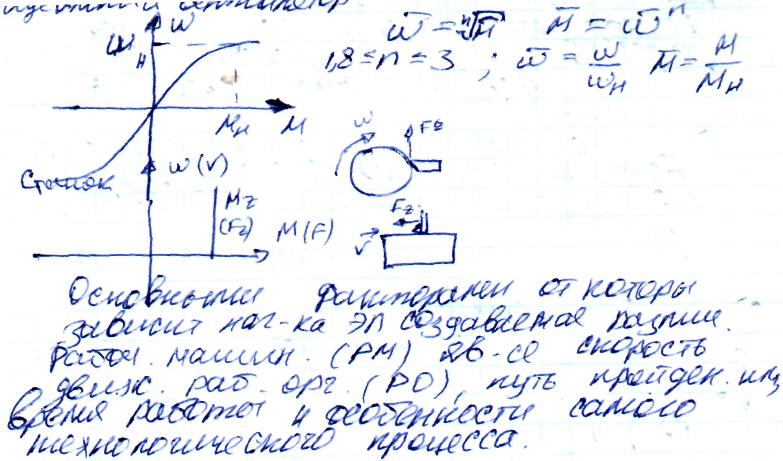 вентилятор
ω̄ = ⁿ√M̄   M̄ = ω̄ⁿ
1,8 ≤ n ≤ 3 ; ω̄ = ω/ωн   M̄ = M/Mн
ω
ωн
Mн   M
ω   Fz
Станок
ω (V)
Mz
(Fz)   M(F)
Fz
V
Основными факторами от которы
зависит наг-ка ЭП создаваемая различ.
Рабоч. машин. (РМ) яв-ся скорость
движ. раб. орг. (РО), путь пройден. им,
время работы и особенности самого
технологического процесса.